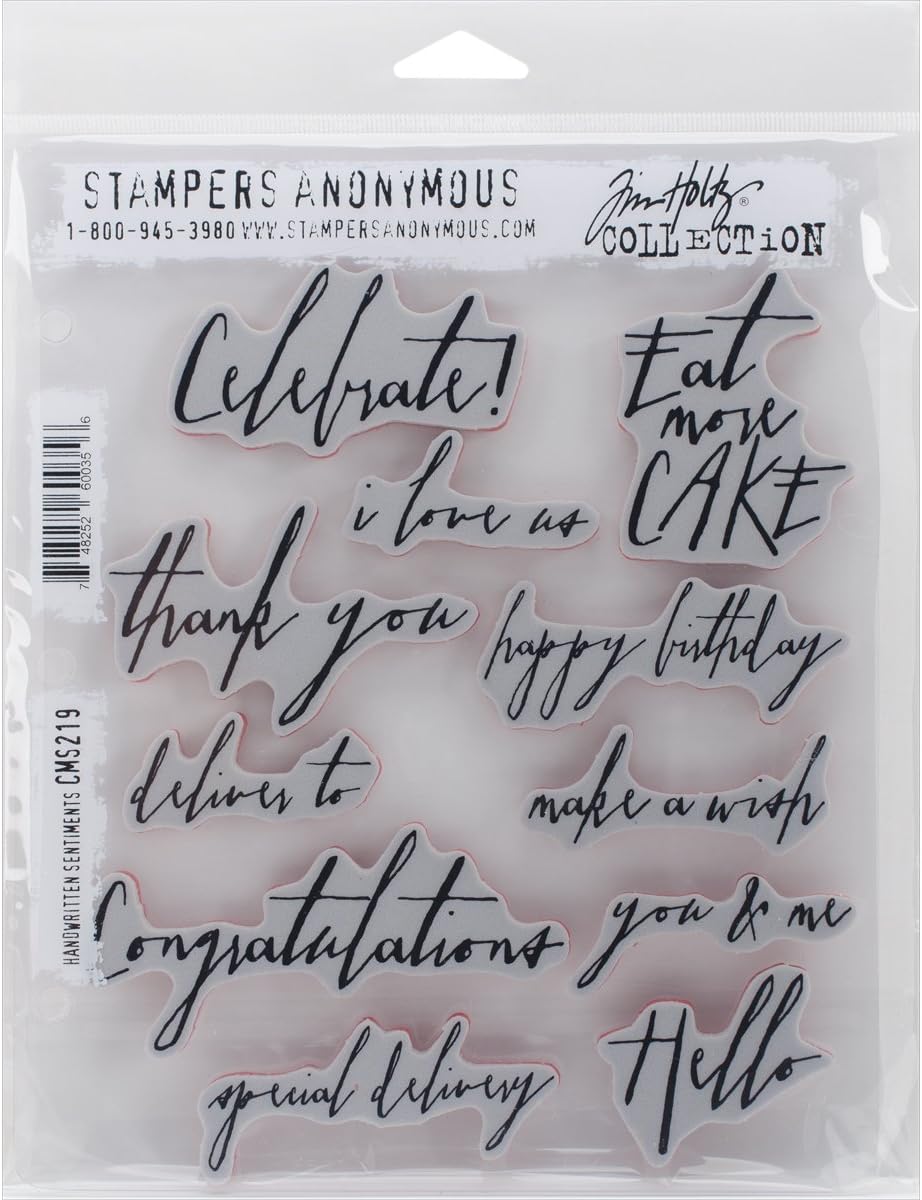 STAMPERS ANONYMOUS
1-800-945-3980 WWW.STAMPERSANONYMOUS.COM
Tim Holtz®
COLLECTiON
Celebrate!
Eat
more
CAKE
i love us
thank you
happy birthday
deliver to
make a wish
Congratulations
you & me
special delivery
Hello
7 48252 60035 6
HANDWRITTEN SENTIMENTS CMS219